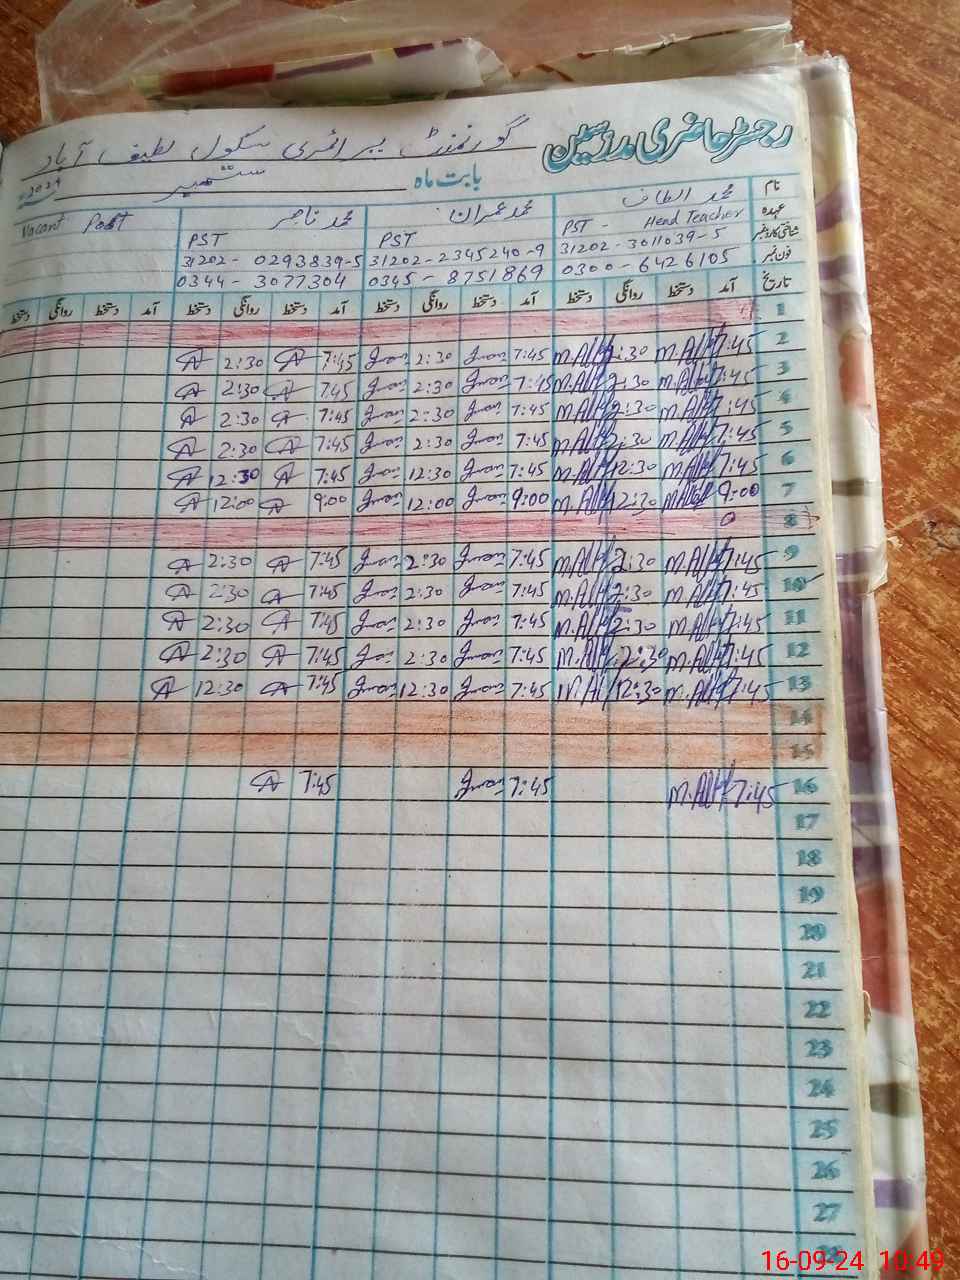 رجسٹر حاضری مدرسین گورنمنٹ پرائمری سکول لطیف آباد
بابت ماہ ستمبر 2024
نام محمد الطاف محمد عمران محمد ناجر
عہدہ PST - Head Teacher PST PST Vacant Post
شناختی کارڈ نمبر 31202-3011039-5 31202-2345240-9 31202-0293839-5
فون نمبر 0300-6426105 0345-8751869 0344-3077304
تاریخ آمد دستخط روانگی دستخط آمد دستخط روانگی دستخط آمد دستخط روانگی دستخط آمد دستخط روانگی دستخط
1
2 7:45 2:30 7:45 2:30 7:45 2:30
3 7:45 2:30 7:45 2:30 7:45 2:30
4 7:45 2:30 7:45 2:30 7:45 2:30
5 7:45 2:30 7:45 2:30 7:45 2:30
6 7:45 12:30 7:45 12:30 7:45 12:30
7 9:00 12:30 9:00 12:00 9:00 12:00
8
9 7:45 2:30 7:45 2:30 7:45 2:30
10 7:45 2:30 7:45 2:30 7:45 2:30
11 7:45 2:30 7:45 2:30 7:45 2:30
12 7:45 2:30 7:45 2:30 7:45 2:30
13 7:45 12:30 7:45 12:30 7:45 12:30
14
15
16 7:45 7:45 7:45
17
18
19
20
21
22
23
24
25
26
27
28
16-09-24 10:49